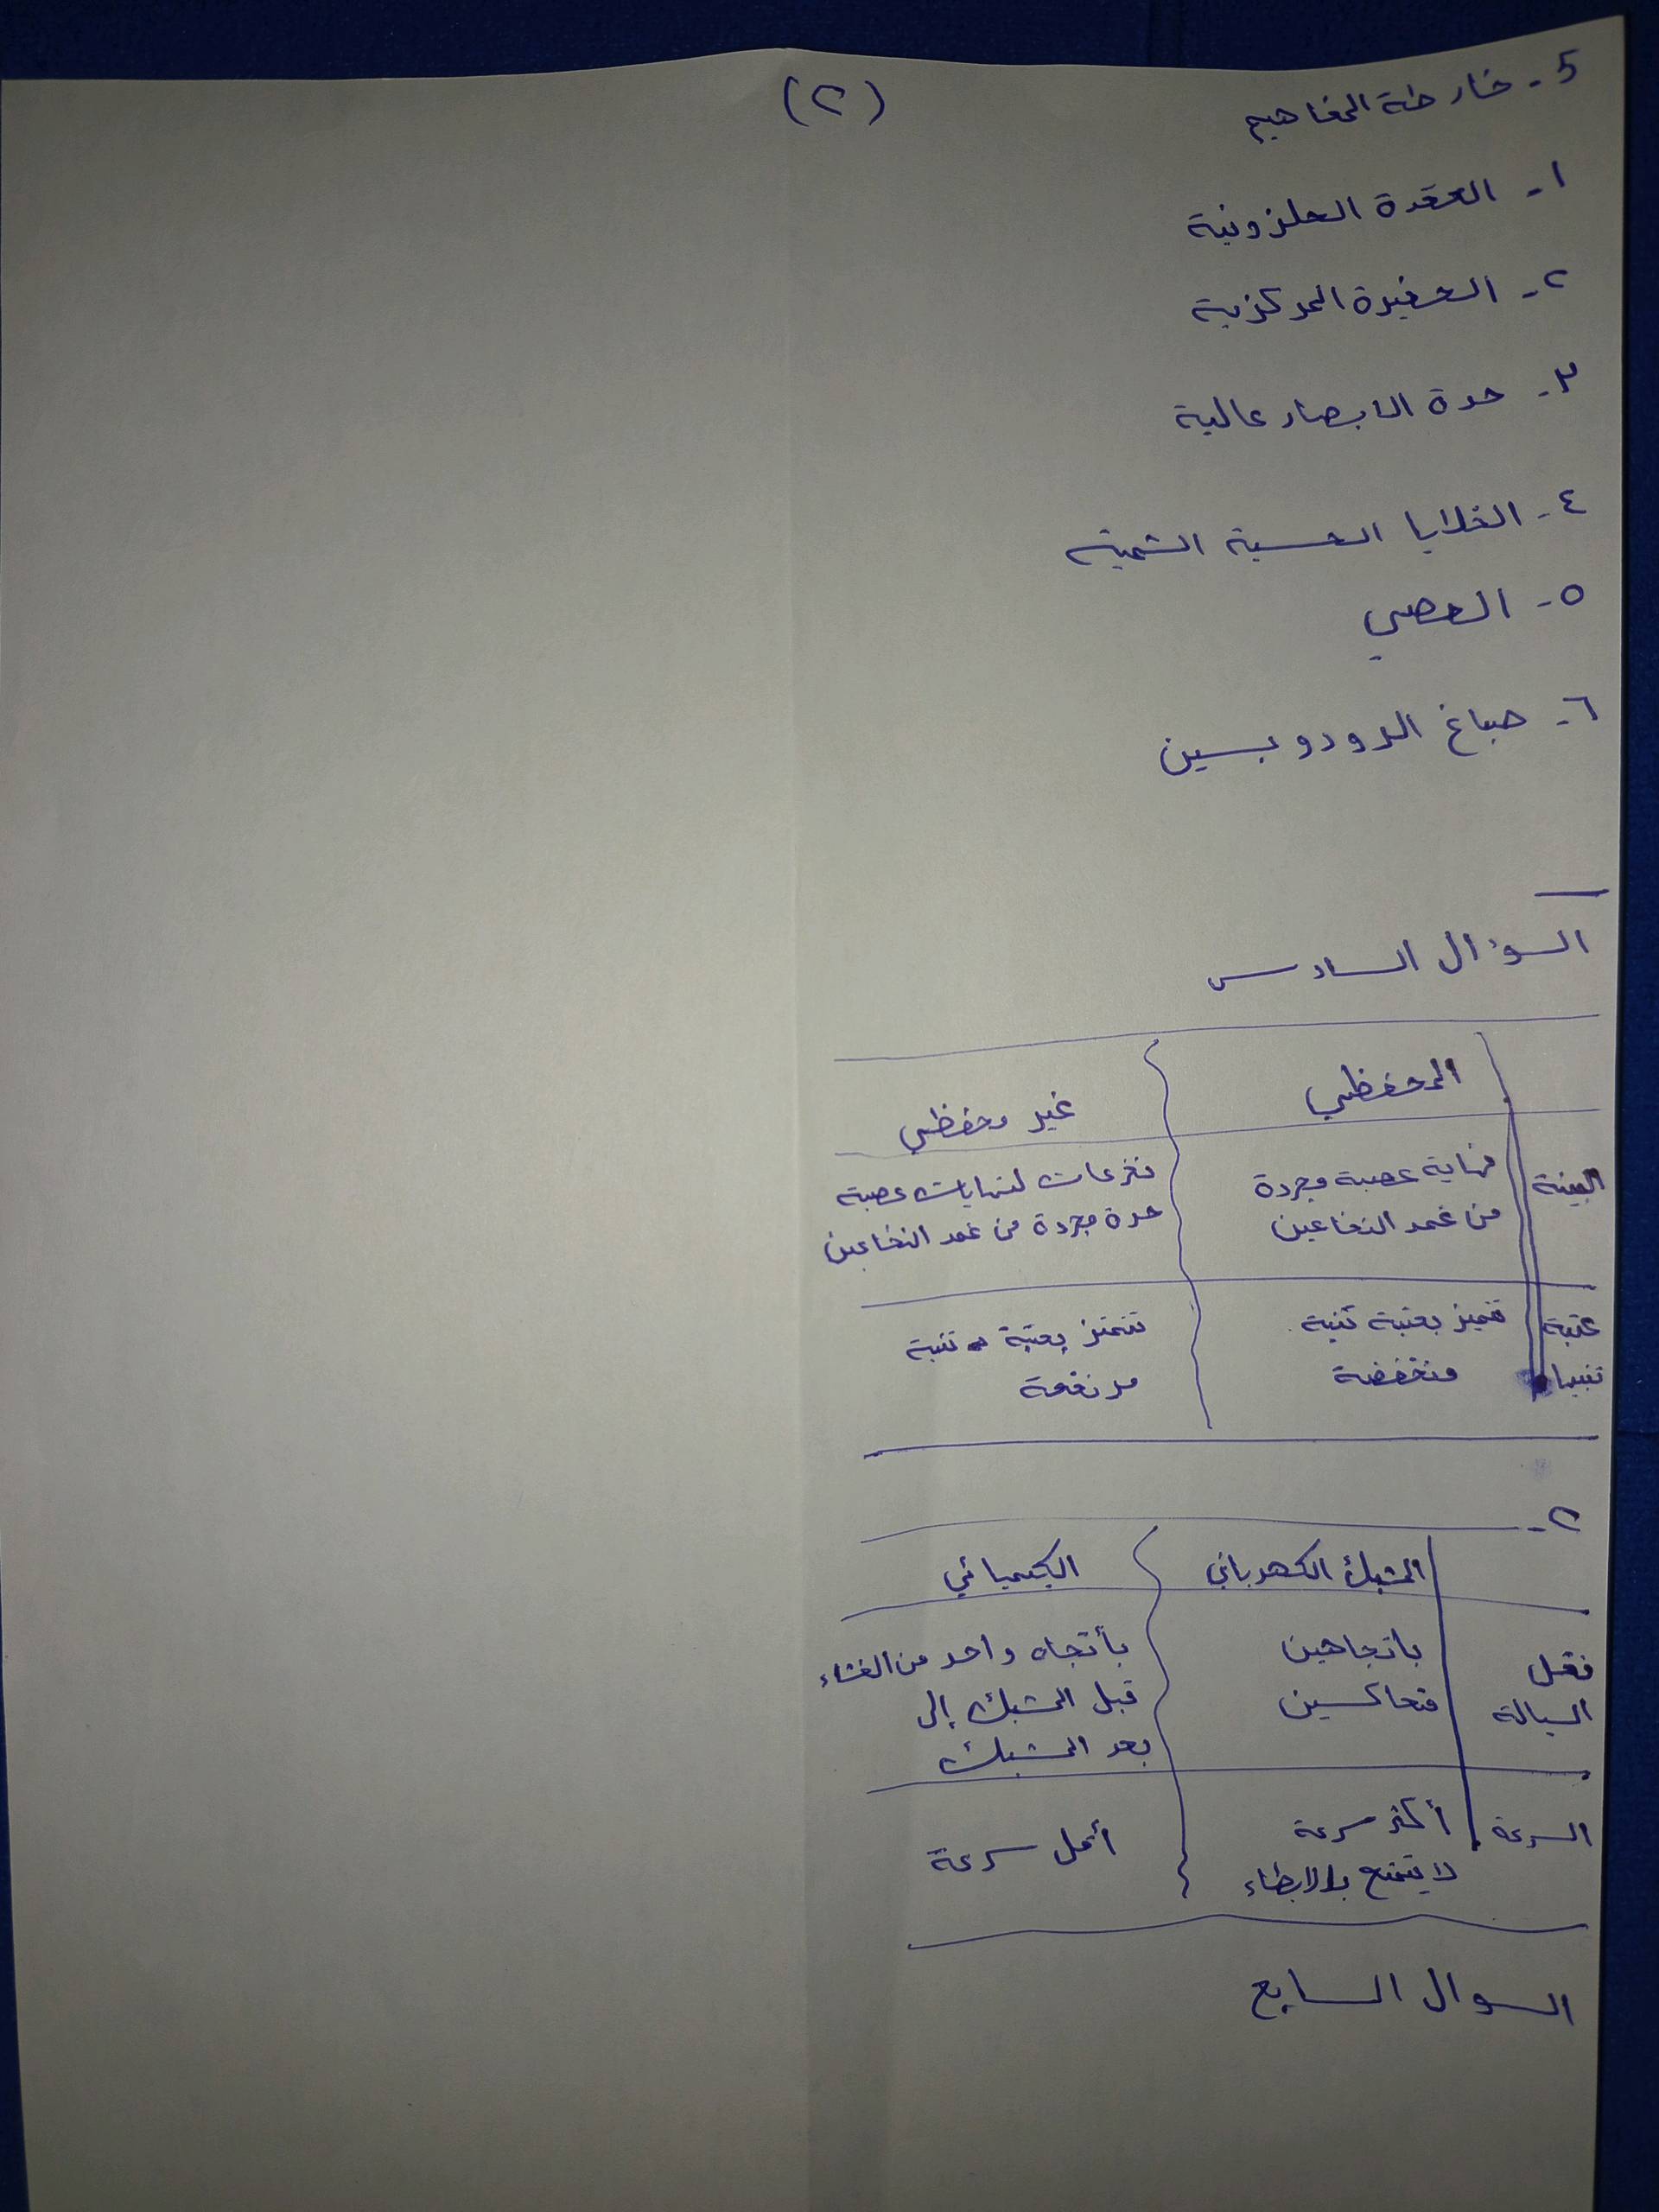 (٢)
5- خارطة المفاهيم
١- العقدة الحلزونية
٢- الحفيرة المركزية
٣- حدة الابصار عالية
٤- الخلايا الحسية الشمية
٥- العصبي
٦- صباغ الرودوبسين
السؤال السادس
المحفظي غير محفظي
البنية نهاية عصبية مجردة تفرعات لنهايات عصبية
من غمد النخاعين حرة مجردة من غمد النخاعين
عتبة تتميز بعتبة تنبيه تتميز بعتبة تنبيه
تنبيهها منخفضة مرتفعة
٢-
المشبك الكهربائي الكيميائي
نقل باتجاهين بأتجاه واحد من الغشاء
السيالة متعاكسين قبل المشبك إلى
بعد المشبك
السرعة أكثر سرعة أقل سرعة
لا يتمتع بالابطاء
السوال السابع